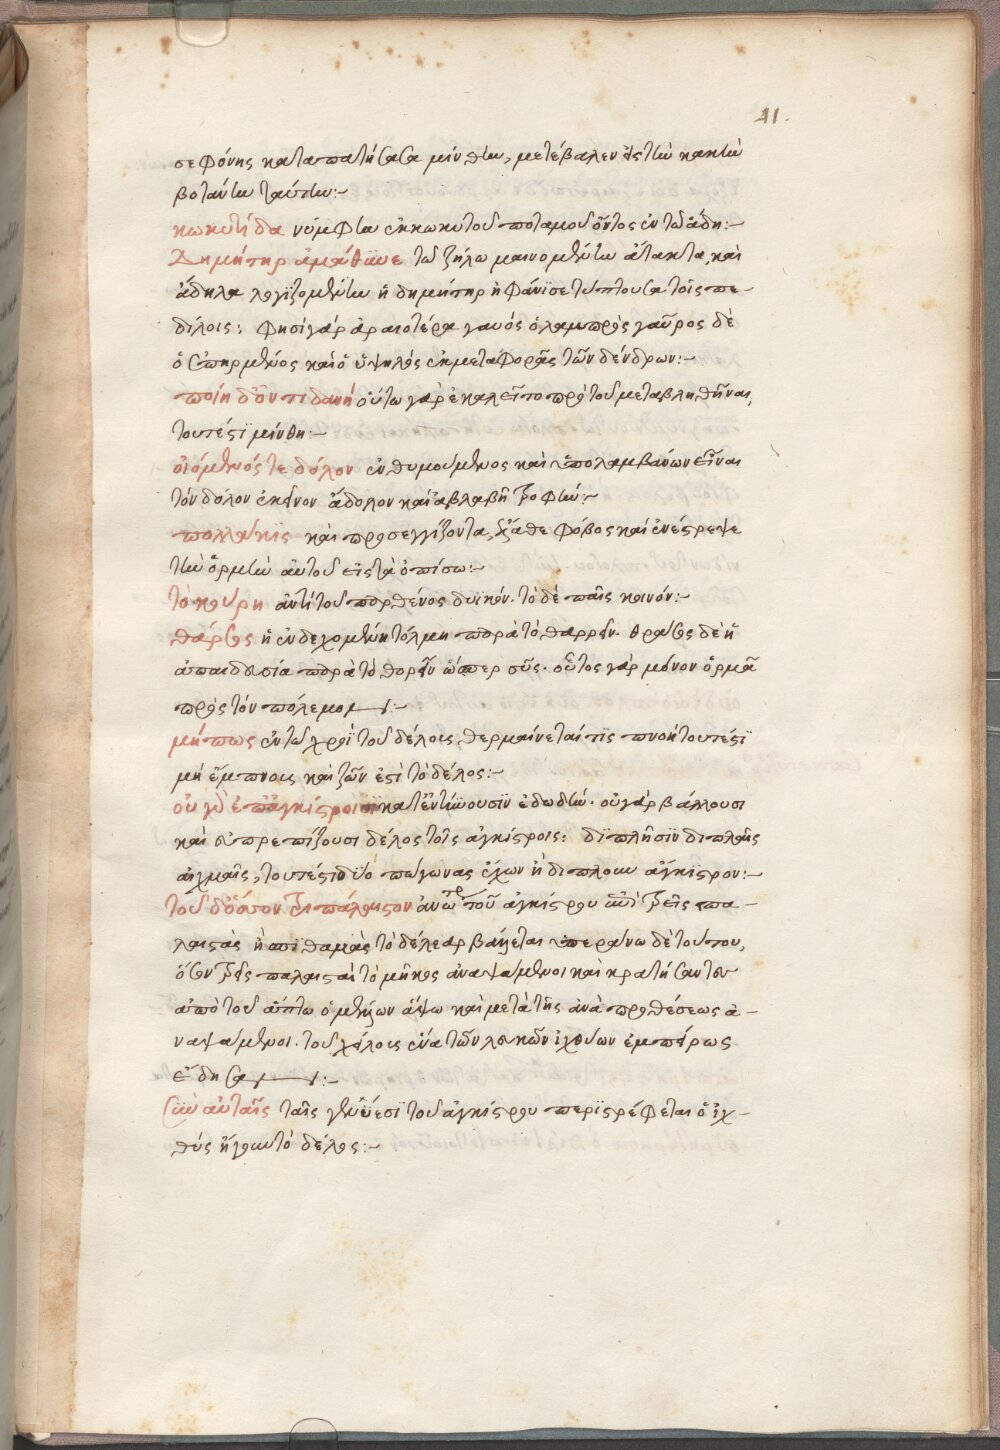 41.
σεφόνης καταπατήσασα μίνθην, μετέβαλεν εἰς τὴν κακὴν
βοτάνην ταύτην:-
κωκυτίδα νύμφην ἐκ κωκυτοῦ ποταμοῦ ὄντος ἐν τῷ ἅδη:-
Δημήτηρ ἀμάθυνε τῷ ζήλῳ μαινομένην ἄτακτα, καὶ
ἄδηλα λογιζομένην ἡ δημήτηρ ἠφάνισε τύπτουσα τοῖς πε-
δίλοις: φησὶ γὰρ ἀραιοτέρα γαυός ὁ λαμπρὸς γαῦρος δὲ
ὁ ἐπηρμένος καὶ ὁ ὑψηλός ἐκ μεταφορᾶς τῶν δένδρων:-
ποίη δ' οὐτιδανή οὕτω γὰρ ἐκαλεῖτο πρὸ τοῦ μεταβληθῆναι,
τουτέστι μίνθη:-
οἰόμενός τε δόλον ἐνθυμούμενος καὶ ὑπολαμβάνων εἶναι
τὸν δόλον ἐκεῖνον ἄδολον καὶ ἀβλαβῆ τροφήν:-
πολλάκις καὶ προσεγγίζοντα, ἔλαθε φόβος καὶ ἀνέστρεψε
τὴν ὁρμὴν αὐτοῦ εἰς τὰ ὀπίσω:-
τὸ κούρη ἀντὶ τοῦ παρθένος δυϊκόν. τὸ δὲ παῖς κοινόν:-
θάρσος ἡ ἐνδεχομένη τόλμη παρὰ τὸ θαρρεῖν. θράσος δὲ ἡ
ἀπαιδευσία παρὰ τὸ θορεῖν ὥσπερ σῦς. οὗτος γὰρ μόνον ὁρμᾶ
πρὸς τὸν πόλεμον:-
μήπως ἐν τῷ χροῒ τοῦ δέλους θερμαίνεταί τις πνοὴ τουτέστι
μὴ ἔμπνους καὶ ζῶν ἐστὶ τὸ δέλος:-
οὐ γὰρ ἐπ' ἀγκίστροισι κατεντύνουσιν ἐδωδήν. οὐ γὰρ βάλλουσι
καὶ εὐτρεπίζουσι δέλος τοῖς ἀγκίστροις: διπλῆσιν διπλαῖς
αἰχμαῖς, τουτέστι δύο πώγωνας ἔχων ἢ διπλοῦν ἄγκιστρον:-
τοῦ δ' ὅσσον τριπάλαιστον ἀνωτέρω τοῦ ἀγκίστρου τρεῖς πα-
λαιστὰς ἢ σπιθαμὰς τὸ δέλεαρ βάλλεται ὑπεράνω δὲ τούτου,
ὅσον τρεῖς παλαισταὶ τὸ μῆκος ἀναψάμενοι καὶ κρατήσαντες
ἀπὸ τοῦ ἅπτω ὁ μέλλων ἅψω καὶ μετὰ τῆς ἀνὰ προθέσεως ἀ-
ναψάμενοι. τοῦ χείλους ἕνα τῶν λευκῶν ἰχθύων ἐμπείρως
ἔδησαν:-
σὺν αὐταῖς ταῖς γενύεσι τοῦ ἀγκίστρου περιστρέφεται ὁ ἰχ-
θύς ἤγουν τὸ δέλος:-